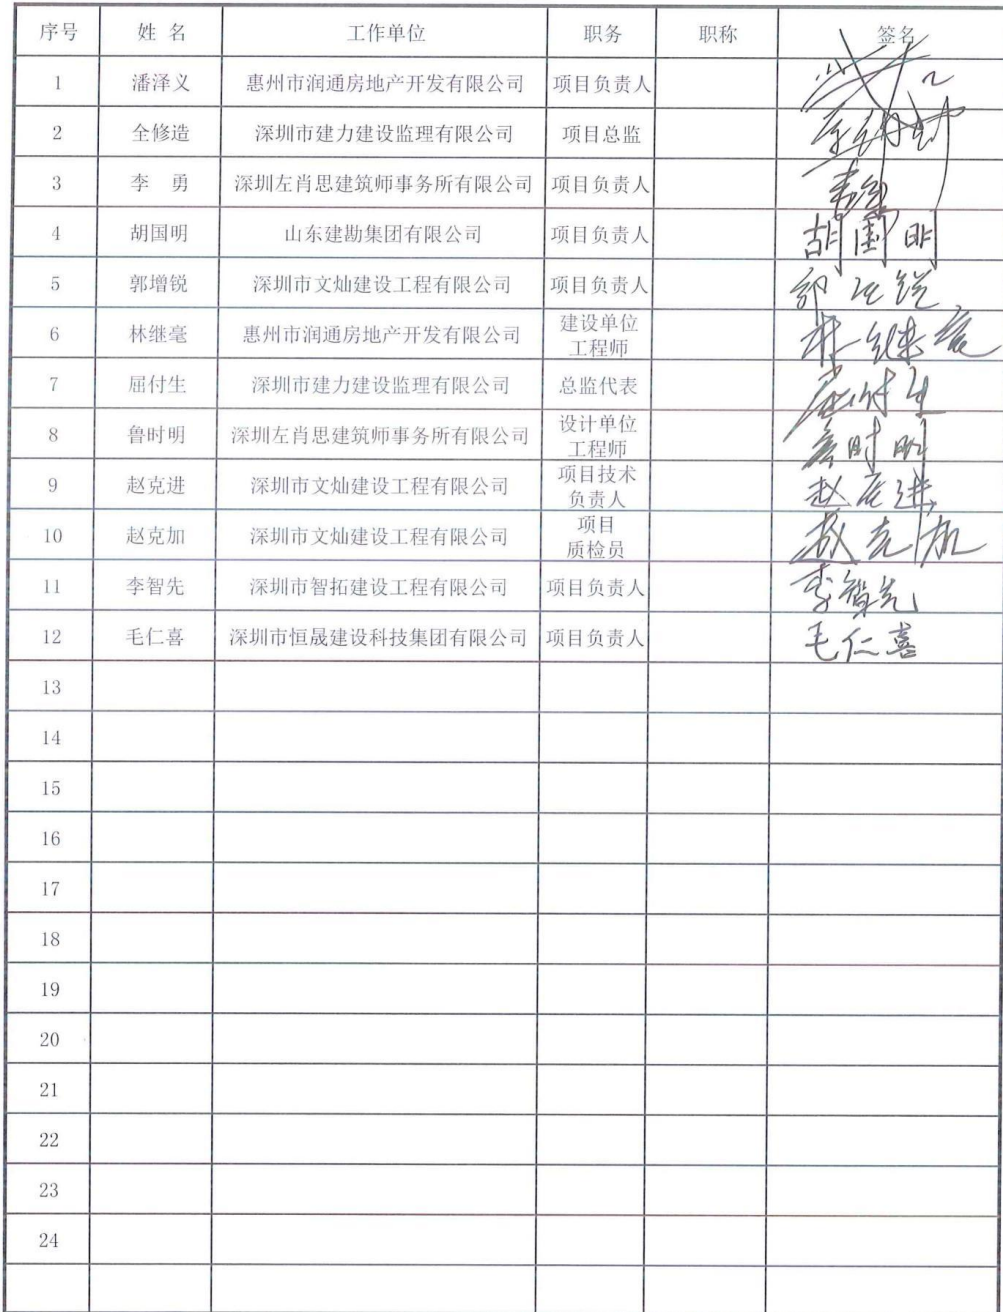 序号 姓 名 工作单位 职务 职称 签名
1 潘泽义 惠州市润通房地产开发有限公司 项目负责人
2 全修造 深圳市建力建设监理有限公司 项目总监
3 李 勇 深圳左肖思建筑师事务所有限公司 项目负责人
4 胡国明 山东建勘集团有限公司 项目负责人 胡国明
5 郭增锐 深圳市文灿建设工程有限公司 项目负责人
6 林继毫 惠州市润通房地产开发有限公司 建设单位
工程师
7 屈付生 深圳市建力建设监理有限公司 总监代表 屈付生
8 鲁时明 深圳左肖思建筑师事务所有限公司 设计单位
工程师 鲁时明
9 赵克进 深圳市文灿建设工程有限公司 项目技术
负责人 赵克进
10 赵克加 深圳市文灿建设工程有限公司 项目
质检员 赵克加
11 李智先 深圳市智拓建设工程有限公司 项目负责人 李智先
12 毛仁喜 深圳市恒晟建设科技集团有限公司 项目负责人 毛仁喜
13
14
15
16
17
18
19
20
21
22
23
24